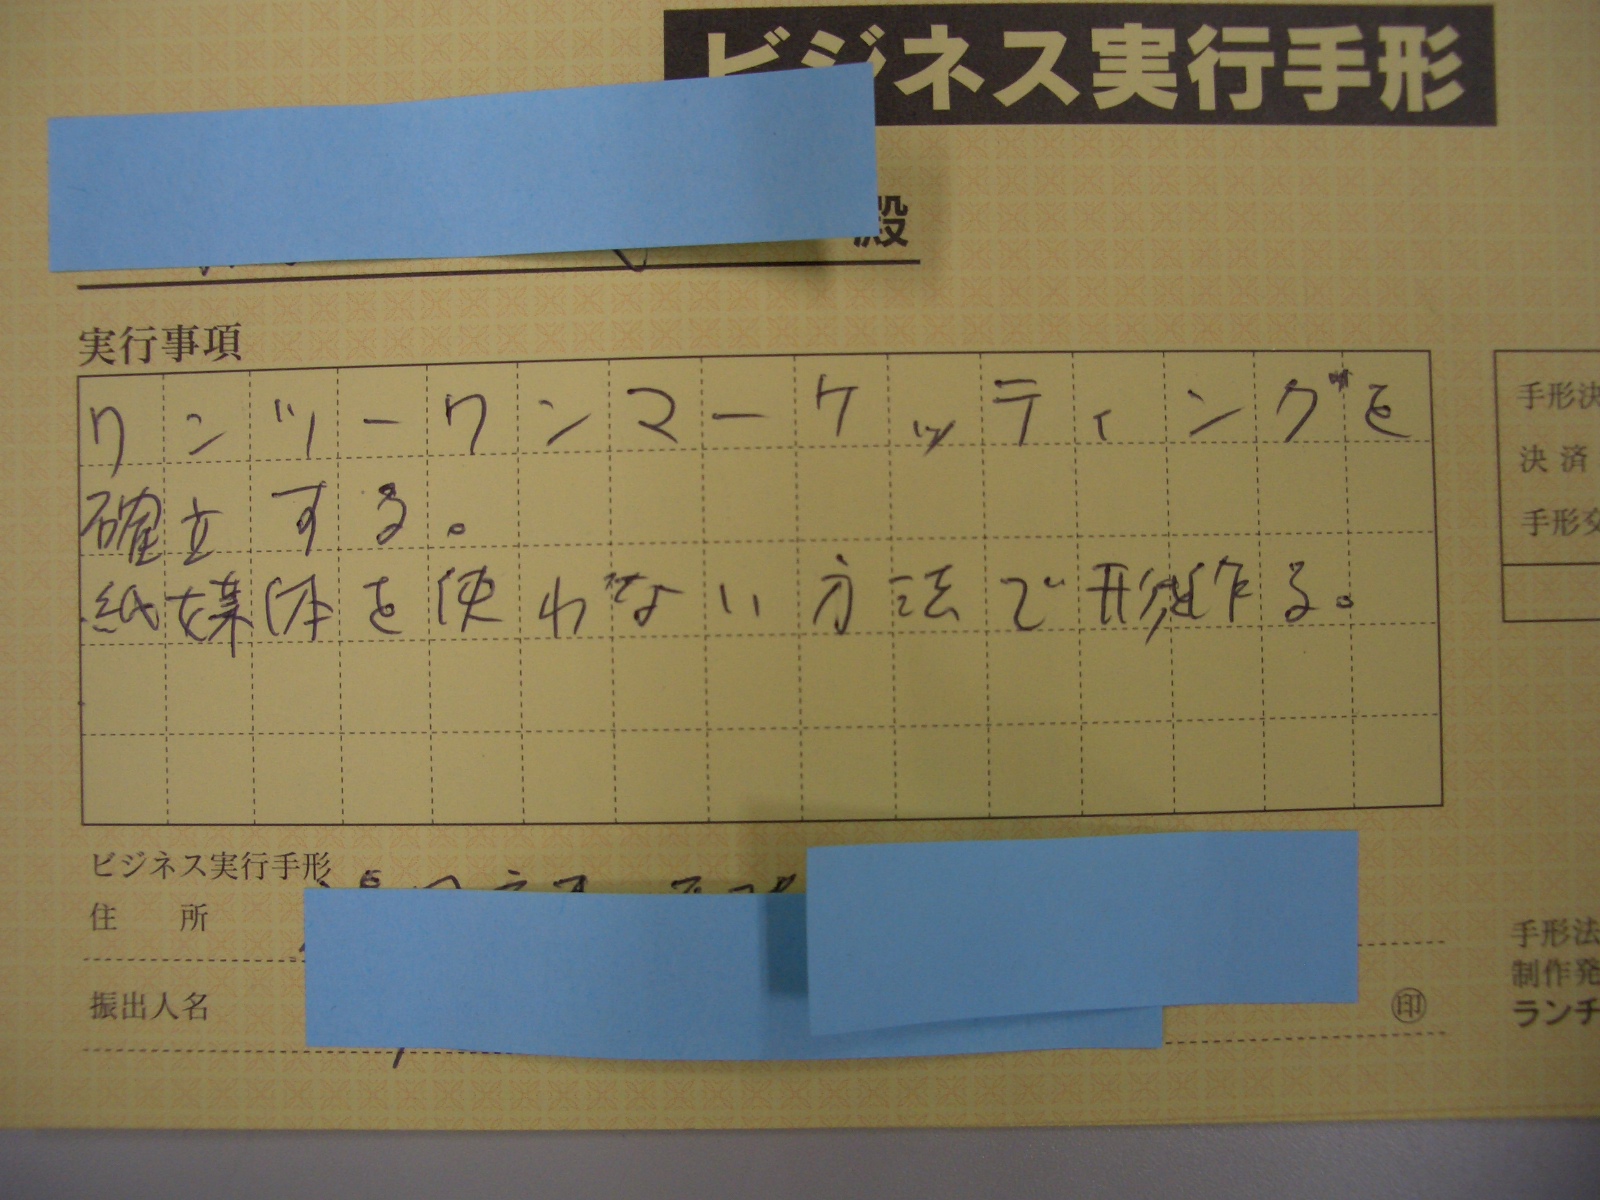 ビジネス実行手形
殿
実行事項
ワンツーワンマーケッティングを
確立する。
紙媒体を使わない方法で形作る。
手形決
決済
手形交
ビジネス実行手形
住所
振出人名
印
手形法
制作発
ランチ